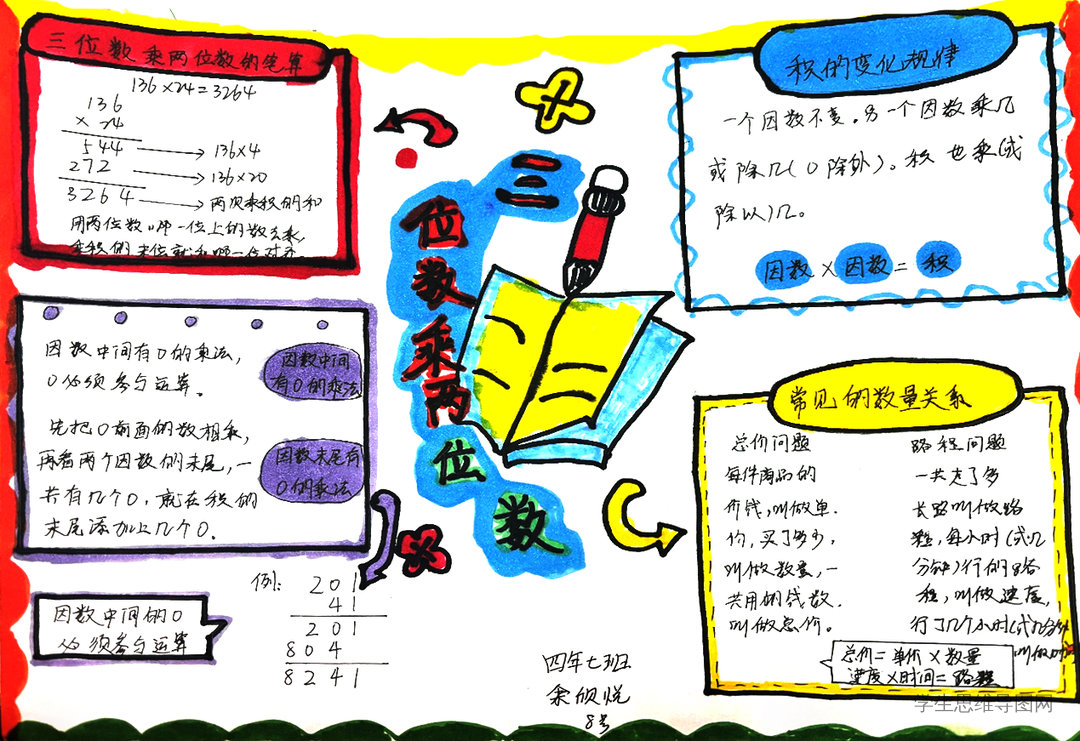 三位数乘两位数的笔算
136×24=3264
136
×24
544 136×4
272 136×20
3264 两次乘积的和
用两位数哪一位上的数去乘,
乘积的末位就和哪一位对齐.
三
位
数
乘
两
位
数
积的变化规律
一个因数不变。另一个因数乘几
或除几(0除外)。积也乘(或
除以)几。
因数×因数=积
因数中间有0的乘法,
0必须参与运算。
因数中间
有0的乘法
先把0前面的数相乘,
再看两个因数的末尾,一
共有几个0,就在积的
末尾添加上几个0.
因数末尾有
0的乘法
因数中间的0
必须参与运算
例:
201
41
201
804
8241
四年七班
8号
常见的数量关系
总价问题
每件商品的
价钱,叫做单.
价,买了多少,
叫做数量,一
共用的钱数.
叫做总价。
路程问题
一共走了多
长路叫做路
程,每小时(或几
分钟)行的路
程,叫做速度,
行了几个小时(或几分钟
叫做时间
总价=单价×数量
速度×时间=路程
学生思维导图网